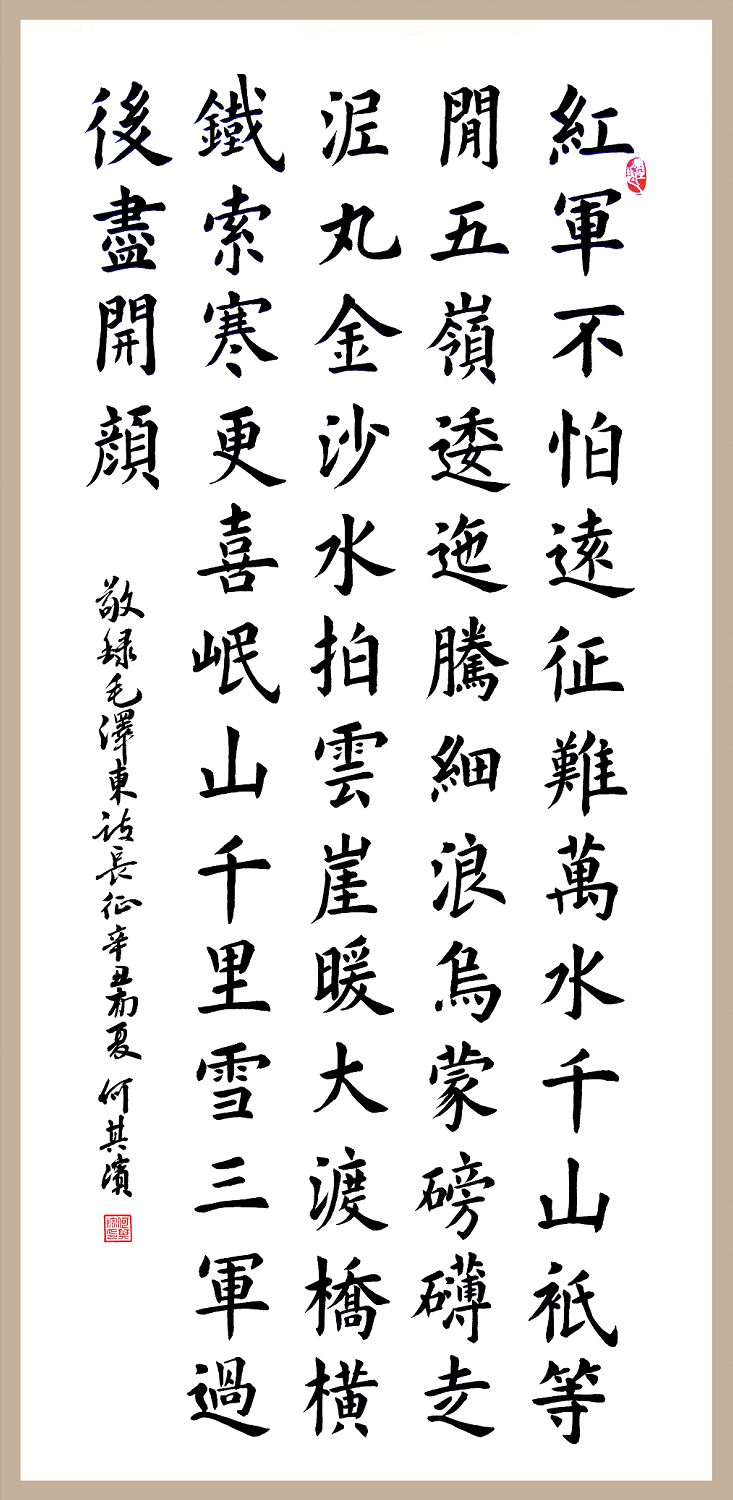 紅軍不怕遠征難萬水千山祇等
閒五嶺逶迤騰細浪烏蒙磅礴走
泥丸金沙水拍雲崖暖大渡橋橫
鐵索寒更喜岷山千里雪三軍過
後盡開顏
敬録毛澤東詩長征辛丑初夏 何其濱